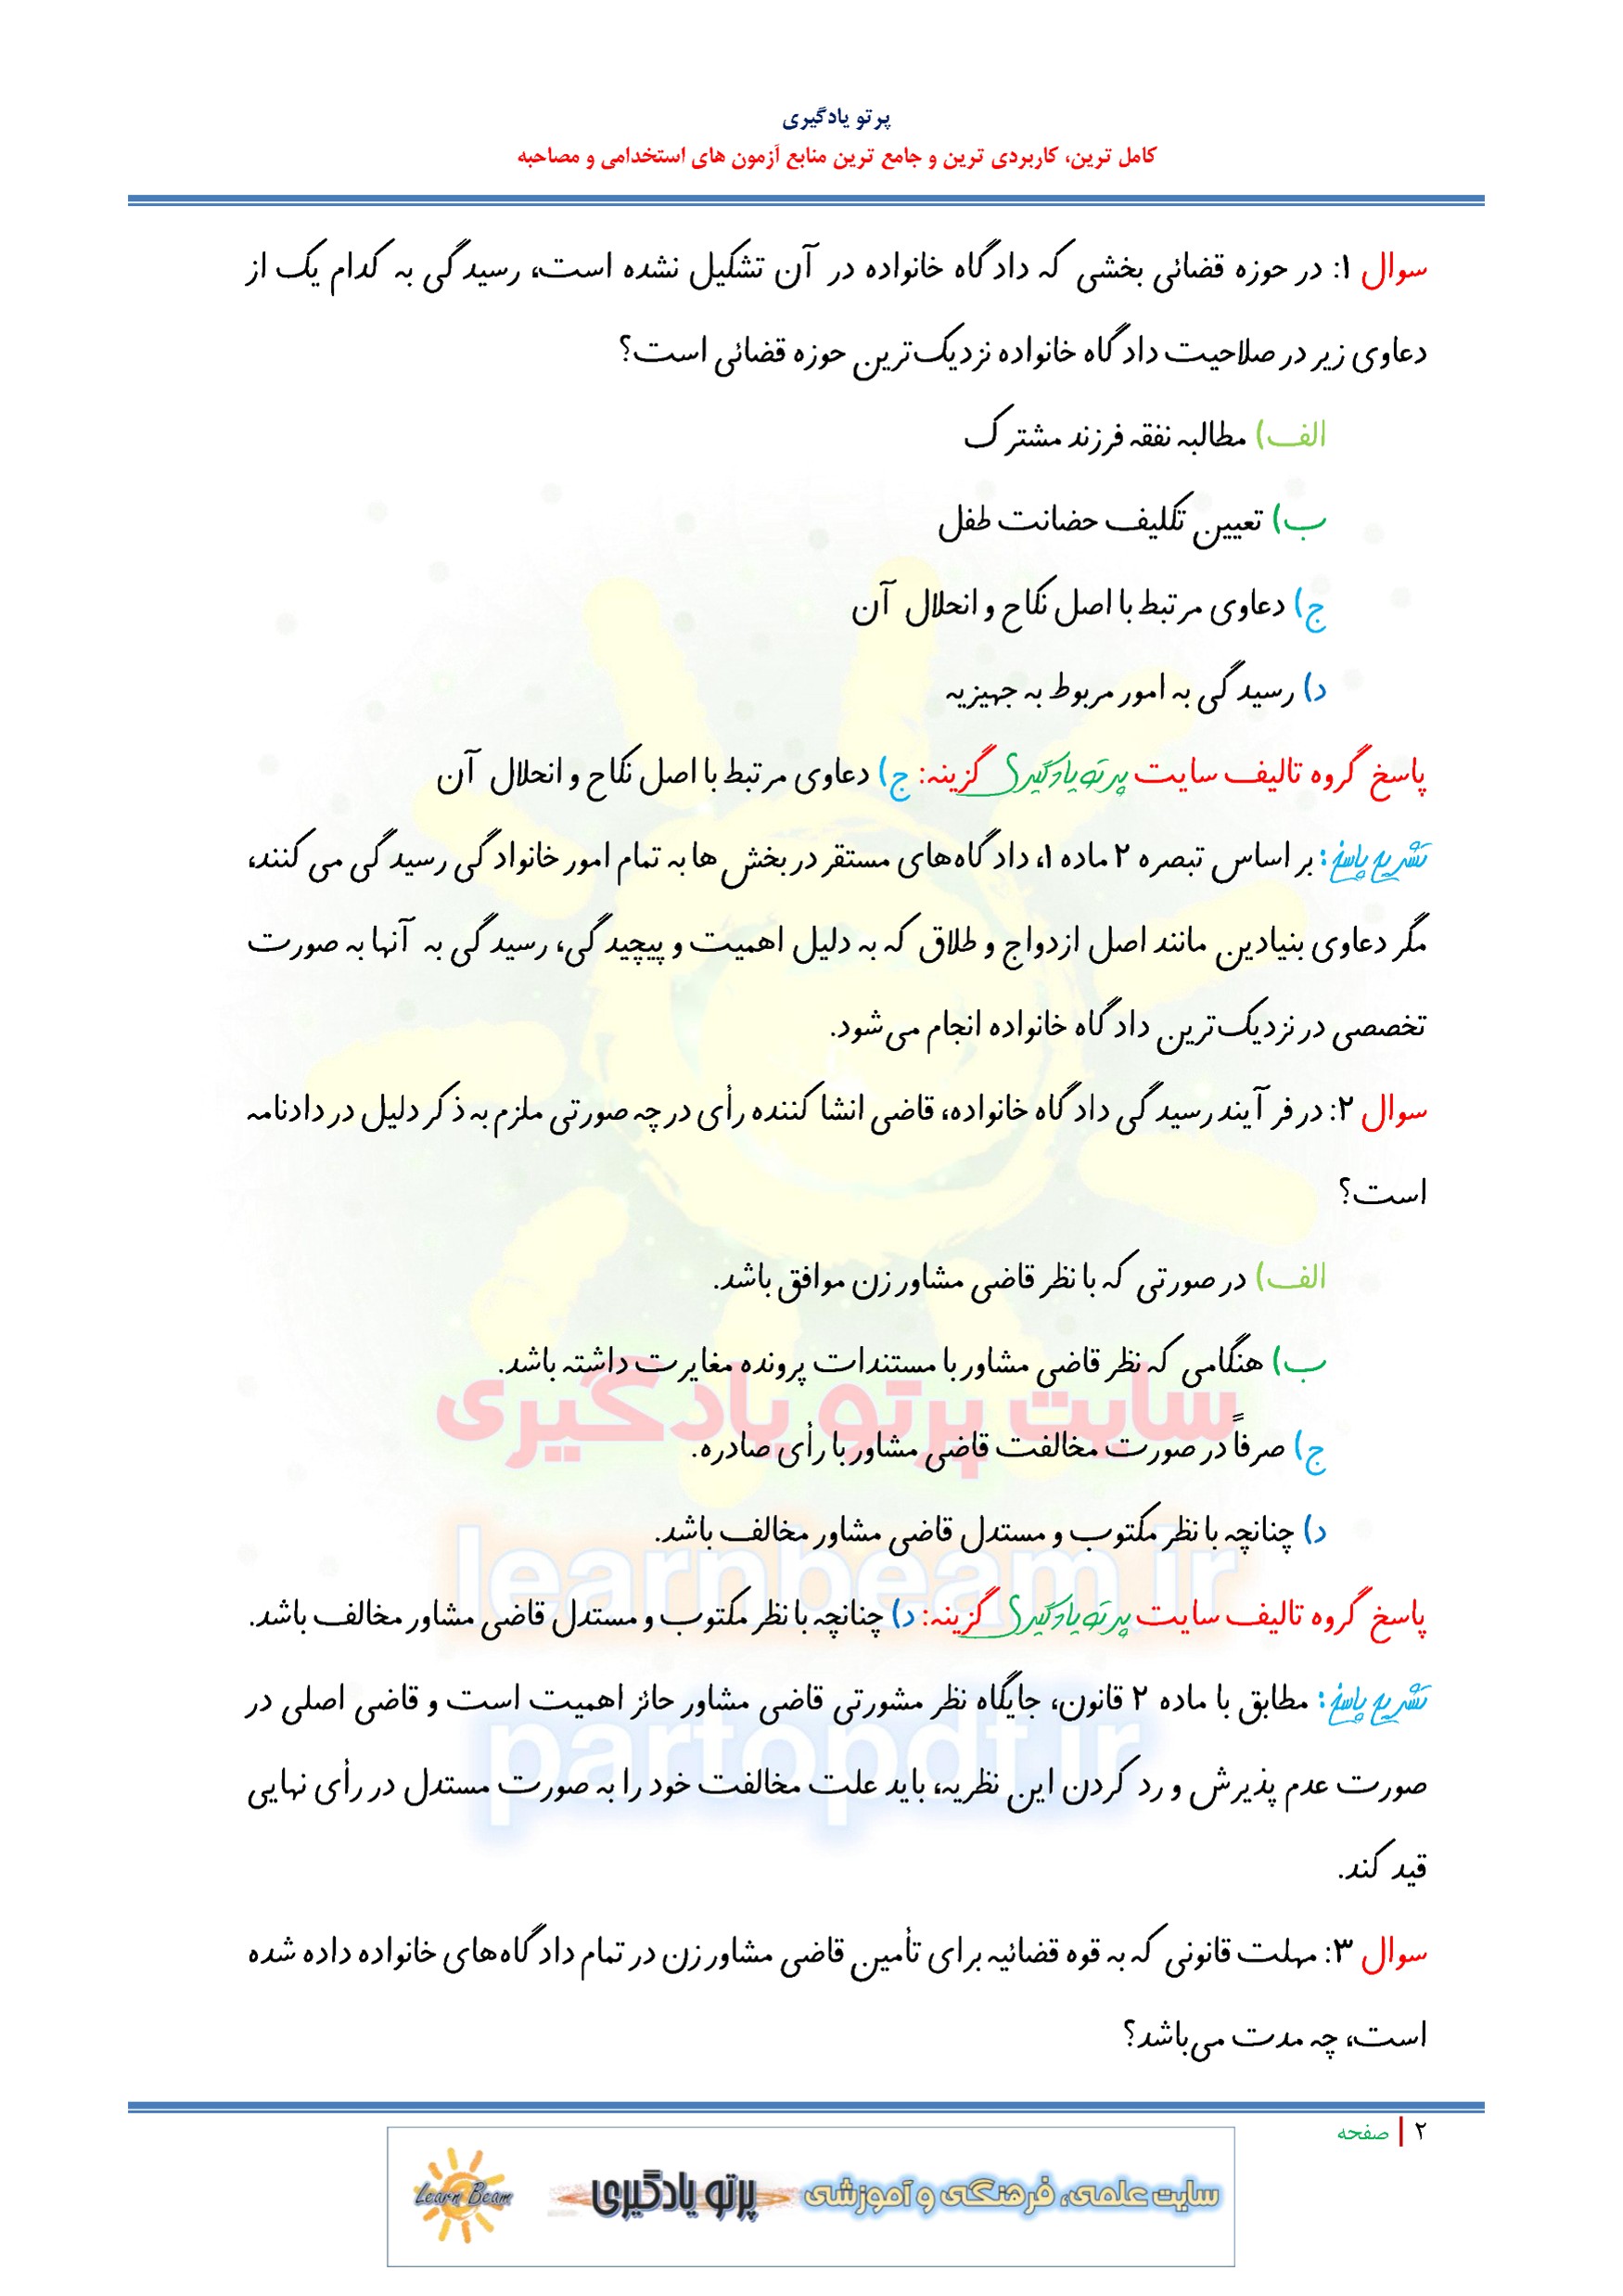 پرتو یادگیری
کامل ترین، کاربردی ترین و جامع ترین منابع آزمون های استخدامی و مصاحبه
سوال ۱: در حوزه قضائی بخشی که دادگاه خانواده در آن تشکیل نشده است، رسیدگی به کدام یک از
دعاوی زیر در صلاحیت دادگاه خانواده نزدیک‌ترین حوزه قضائی است؟
الف) مطالبه نفقه فرزند مشترک
ب) تعیین تکلیف حضانت طفل
ج) دعاوی مرتبط با اصل نکاح و انحلال آن
د) رسیدگی به امور مربوط به جهیزیه
پاسخ گروه تالیف سایت پرتو یادگیری گزینه: ج) دعاوی مرتبط با اصل نکاح و انحلال آن
تشریح پاسخ: بر اساس تبصره ۲ ماده ۱، دادگاه‌های مستقر در بخش ها به تمام امور خانوادگی رسیدگی می کنند،
مگر دعاوی بنیادین مانند اصل ازدواج و طلاق که به دلیل اهمیت و پیچیدگی، رسیدگی به آنها به صورت
تخصصی در نزدیک‌ترین دادگاه خانواده انجام می‌شود.
سوال ۲: در فرآیند رسیدگی دادگاه خانواده، قاضی انشا کننده رأی در چه صورتی ملزم به ذکر دلیل در دادنامه
است؟
الف) در صورتی که با نظر قاضی مشاور زن موافق باشد.
ب) هنگامی که نظر قاضی مشاور با مستندات پرونده مغایرت داشته باشد.
سایت پرتو یادگیری
ج) صرفاً در صورت مخالفت قاضی مشاور با رأی صادره.
د) چنانچه با نظر مکتوب و مستدل قاضی مشاور مخالف باشد.
learnbeam.ir
پاسخ گروه تالیف سایت پرتو یادگیری گزینه: د) چنانچه با نظر مکتوب و مستدل قاضی مشاور مخالف باشد.
تشریح پاسخ: مطابق با ماده ۲ قانون، جایگاه نظر مشورتی قاضی مشاور حائز اهمیت است و قاضی اصلی در
partopdf.ir
صورت عدم پذیرش و رد کردن این نظریه، باید علت مخالفت خود را به صورت مستدل در رأی نهایی
قید کند.
سوال ۳: مهلت قانونی که به قوه قضائیه برای تأمین قاضی مشاور زن در تمام دادگاه‌های خانواده داده شده
است، چه مدت می‌باشد؟
۲ | صفحه
سایت علمی، فرهنگی و آموزشی پرتو یادگیری Learn Beam